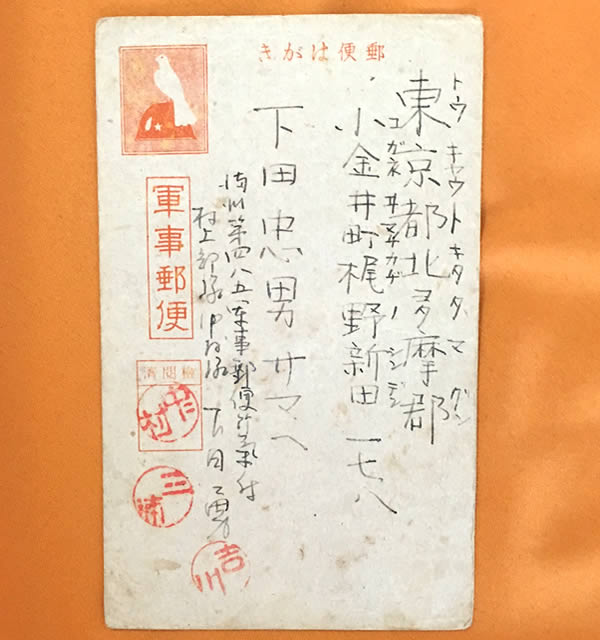 郵便はがき
トウキャウトキタタマグン
東京都北多摩郡
コガネヰマチカヂノシンデン
小金井町梶野新田 一七八
下田忠男サマヘ
満州第四八五軍事郵便所氣付
村上部隊 下田勇
軍事郵便
檢閲濟
中村
三浦
吉川